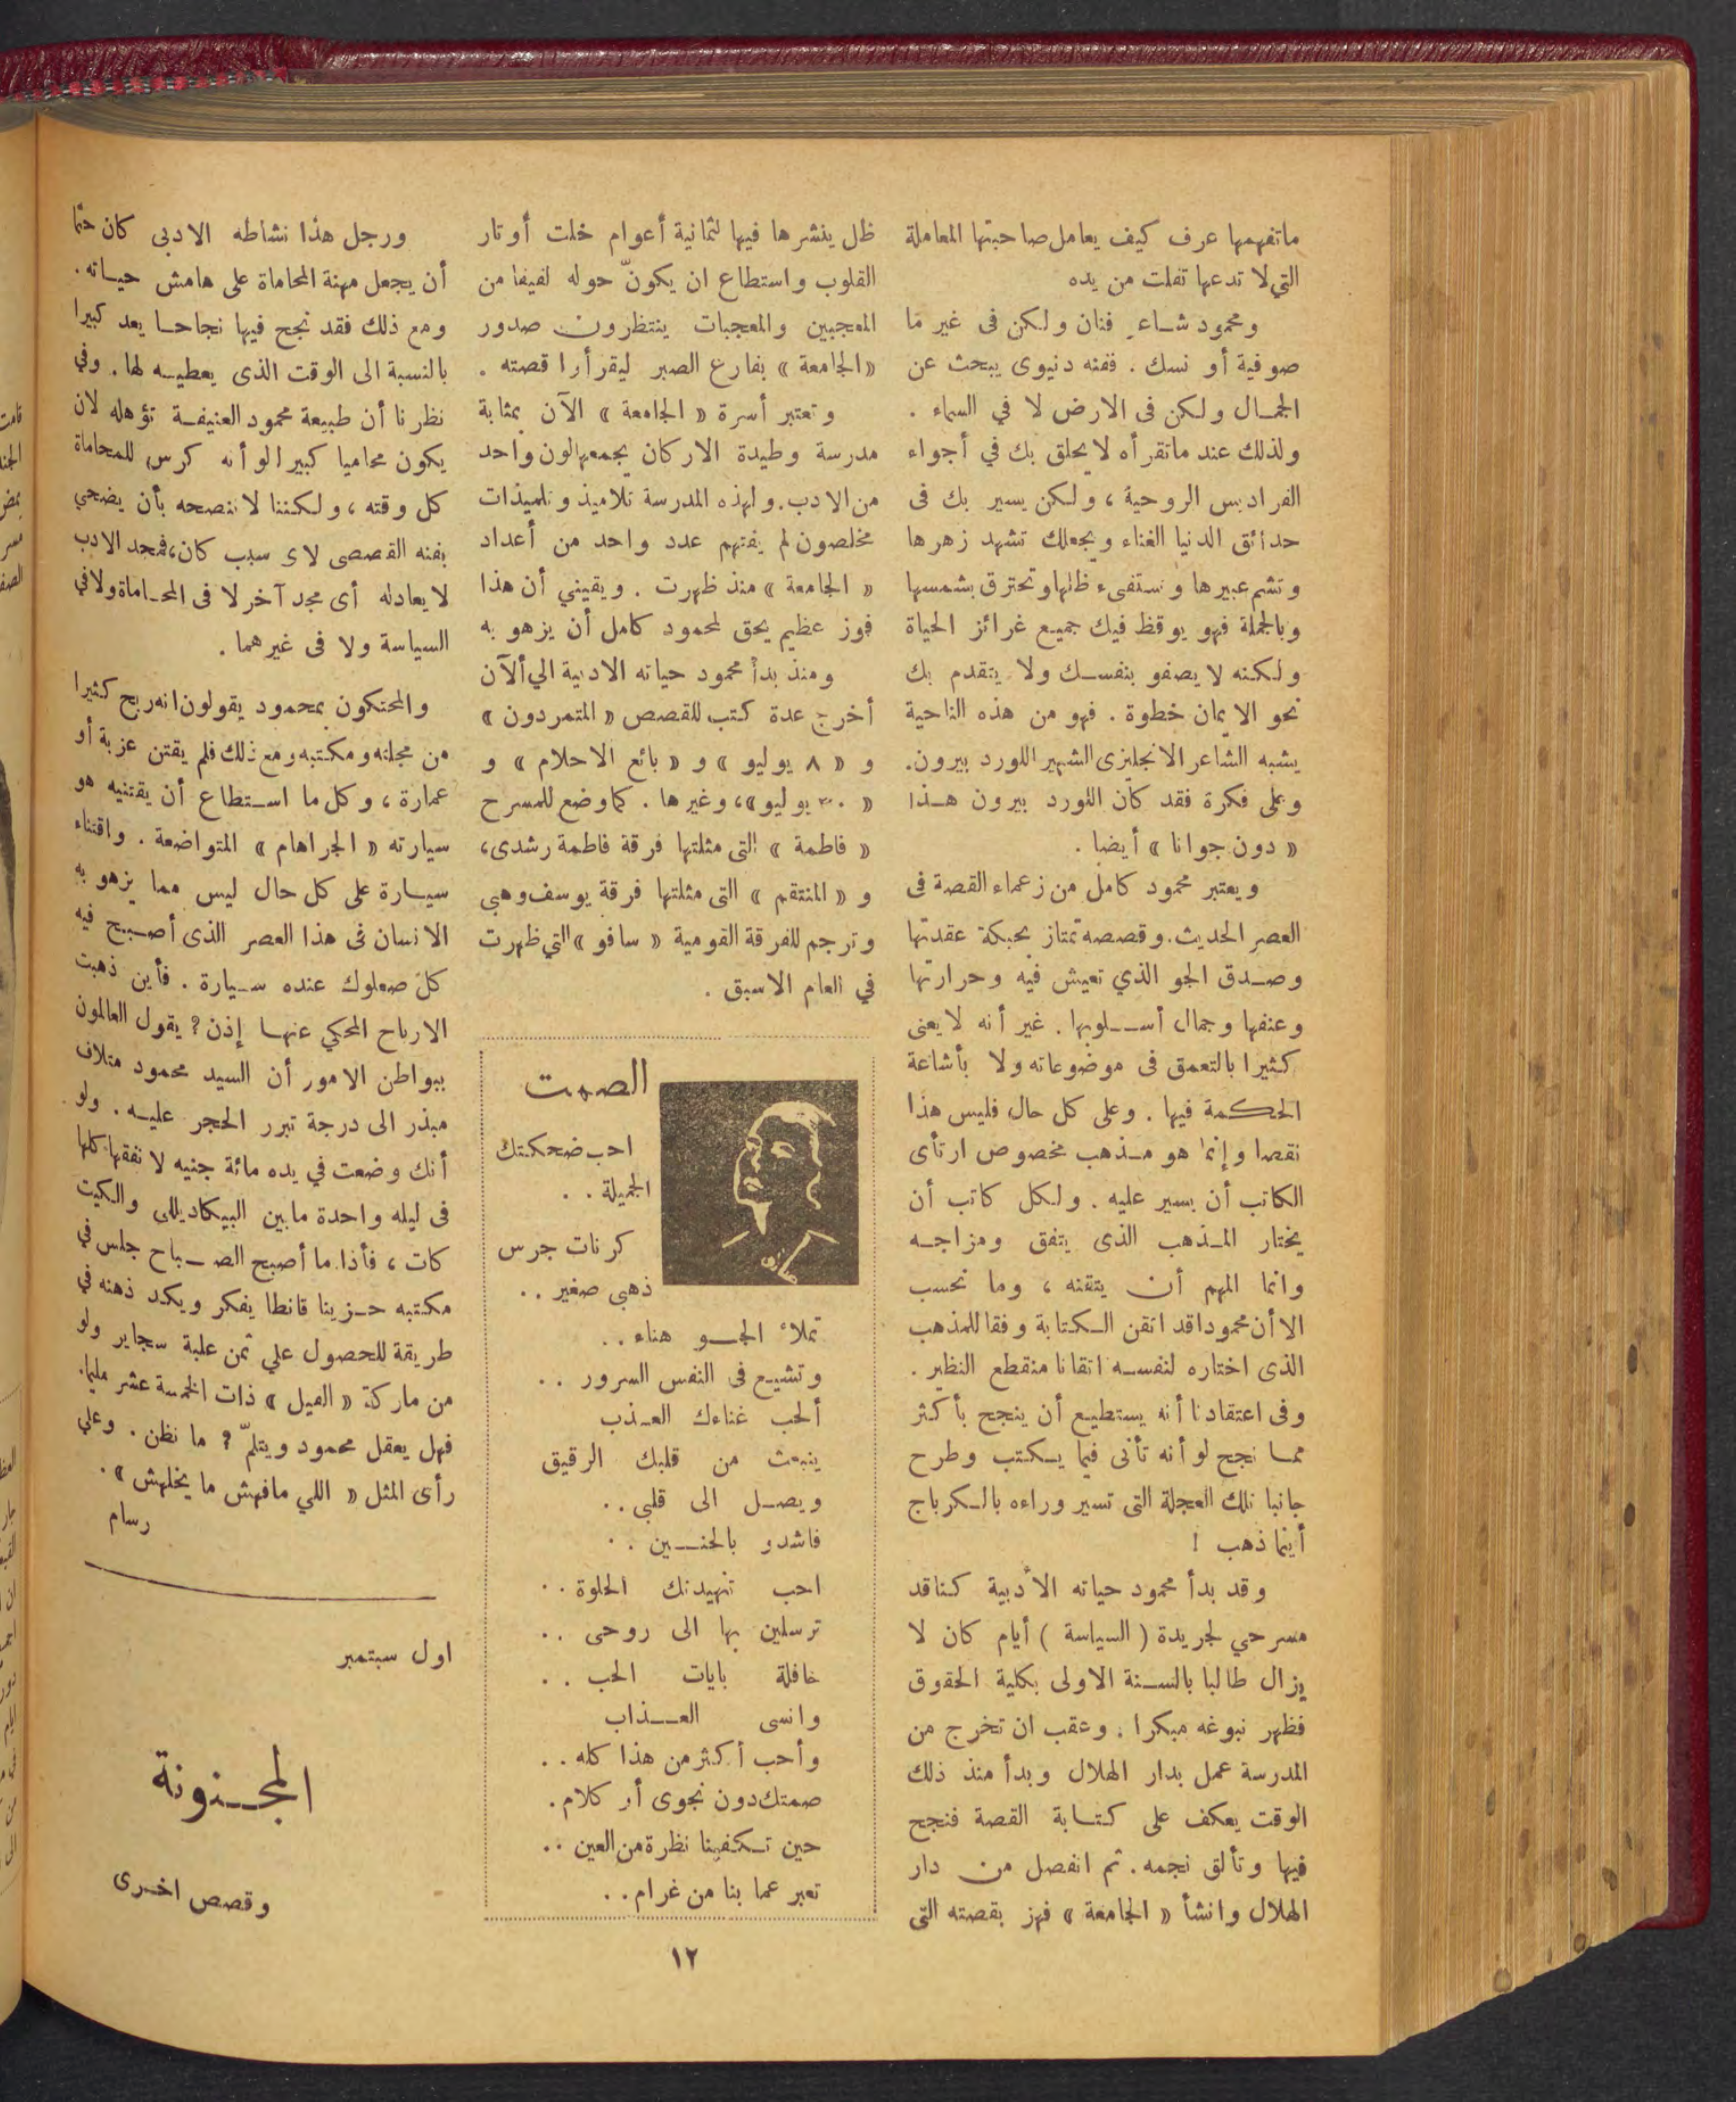 ماتفهمها عرف كيف يعامل صاحبتها المعاملة
التي لا تدعها تفلت من يده
ومحمود شاعر فنان ولكن فى غير ما
صوفية أو نسك . ففنه دنيوى يبحث عن
الجمال ولكن فى الارض لا في السماء .
ولذلك عند ماتقرأه لا يحلق بك في أجواء
الفراديس الروحية ، ولكن يسير بك فى
حدائق الدنيا الغناء ويجعلك تشهد زهرها
وتشم عبيرها وتستفىء ظلها وتحترق بشمسها
وبالجملة فهو يوقظ فيك جميع غرائز الحياة
ولكنه لا يصفو بنفسك ولا يتقدم بك
نحو الايمان خطوة . فهو من هذه الناحية
يشبه الشاعر الانجليزى الشهير اللورد بيرون.
وعلى فكرة فقد كان اللورد بيرون هذا
« دون جوانا » أيضا .
ويعتبر محمود كامل من زعماء القصة فى
العصر الحديث. وقصصه تمتاز بحبكة عقدتها
وصدق الجو الذي تعيش فيه وحرارتها
وعنفها وجمال أسلوبها . غير أنه لا يعنى
كثيرا بالتعمق فى موضوعاته ولا بأشاعة
الحكمة فيها . وعلى كل حال فليس هذا
نقصا وإنما هو مذهب مخصوص ارتأى
الكاتب أن يسير عليه . ولكل كاتب أن
يختار المذهب الذى يتفق ومزاجه
وانما المهم أن يتقنه ، وما نحسب
الا أن محمودا قد اتقن الكتابة وفقا للمذهب
الذى اختاره لنفسه اتقانا منقطع النظير .
وفى اعتقادنا أنه يستطيع أن ينجح بأكثر
مما نجح لو أنه تأنى فيما يكتب وطرح
جانبا تلك العجلة التى تسير وراءه بالكرباج
أينما ذهب !
وقد بدأ محمود حياته الأدبية كناقد
مسرحي لجريدة ( السياسة ) أيام كان لا
يزال طالبا بالسنة الاولى بكلية الحقوق
فظهر نبوغه مبكرا . وعقب ان تخرج من
المدرسة عمل بدار الهلال وبدأ منذ ذلك
الوقت يعكف على كتابة القصة فنجح
فيها وتألق نجمه . ثم انفصل من دار
الهلال وانشأ « الجامعة » فهز بقصته التى
ظل ينشرها فيها لثمانية أعوام خلت أوتار
القلوب واستطاع ان يكوّن حوله لفيفا من
المعجبين والمعجبات ينتظرون صدور
« الجامعة » بفارغ الصبر ليقرأوا قصته .
وتعتبر أسرة « الجامعة » الآن بمثابة
مدرسة وطيدة الاركان يجمعها لون واحد
من الادب. ولهذه المدرسة تلاميذ وتلميذات
مخلصون لم يفتهم عدد واحد من أعداد
« الجامعة » منذ ظهرت . ويقيني أن هذا
فوز عظيم يحق لمحمود كامل أن يزهو به
ومنذ بدأ محمود حياته الادبية الي الآن
أخرج عدة كتب للقصص « المتمردون »
و « ٨ يوليو » و « بائع الاحلام » و
« ٣٠ يوليو»، وغيرها . كما وضع للمسرح
« فاطمة » التى مثلتها فرقة فاطمة رشدى،
و « المنتقم » التى مثلتها فرقة يوسف وهبى
وترجم للفرقة القومية « سافو » التي ظهرت
في العام الاسبق .
الصمت
احب ضحكتك
الجميلة . .
كرنات جرس
ذهبى صغير . .
تملأ الجو هناء . .
وتشيع فى النفس السرور . .
ألحب غناءك العذب
ينبعث من قلبك الرقيق
ويصل الى قلبى . .
فاشدو بالحنين . .
احب تنهيدتك الحلوة . .
ترسلين بها الى روحى . .
حافلة بايات الحب . .
وانسى العذاب
وأحب أكثر من هذا كله . .
صمتك دون نجوى أو كلام .
حين تكفينا نظرة من العين . .
تعبر عما بنا من غرام . .
ورجل هذا نشاطه الادبى كان حتما
أن يجعل مهنة المحاماة على هامش حياته .
ومع ذلك فقد نجح فيها نجاحا يعد كبيرا
بالنسبة الى الوقت الذى يعطيه لها . وفي
نظرنا أن طبيعة محمود العنيفة تؤهله لان
يكون محاميا كبيرا لو أنه كرس للمحاماة
كل وقته ، ولكننا لا ننصحه بأن يضحي
بفنه القصصى لاى سبب كان، فمجد الادب
لا يعادله أى مجد آخر لا فى المحاماة ولا في
السياسة ولا فى غيرهما .
والمحتكون بمحمود يقولون انه ربح كثيرا
من مجلته ومكتبه ومع ذلك فلم يقتن عزبة أو
عمارة ، وكل ما استطاع أن يقتنيه هو
سيارته « الجراهام » المتواضعة . واقتناء
سيارة على كل حال ليس مما يزهو به
الانسان فى هذا العصر الذى أصبح فيه
كل صعلوك عنده سيارة . فأين ذهبت
الارباح المحكي عنها إذن ؟ يقول العالمون
ببواطن الامور أن السيد محمود متلاف
مبذر الى درجة تبرر الحجر عليه . ولو
أنك وضعت في يده مائة جنيه لا نفقها كلها
فى ليله واحدة مابين البيكاديللى والكيت
كات ، فأذا ما أصبح الصباح جلس في
مكتبه حزينا قانطا يفكر ويكد ذهنه في
طريقة للحصول علي ثمن علبة سجاير ولو
من ماركة « الفيل » ذات الخمسة عشر مليما.
فهل يعقل محمود ويتلمّ ؟ ما نظن . وعلي
رأى المثل « اللي مافهش ما يخلهش » .
رسام
اول سبتمبر
المجنونة
وقصص اخرى
١٢